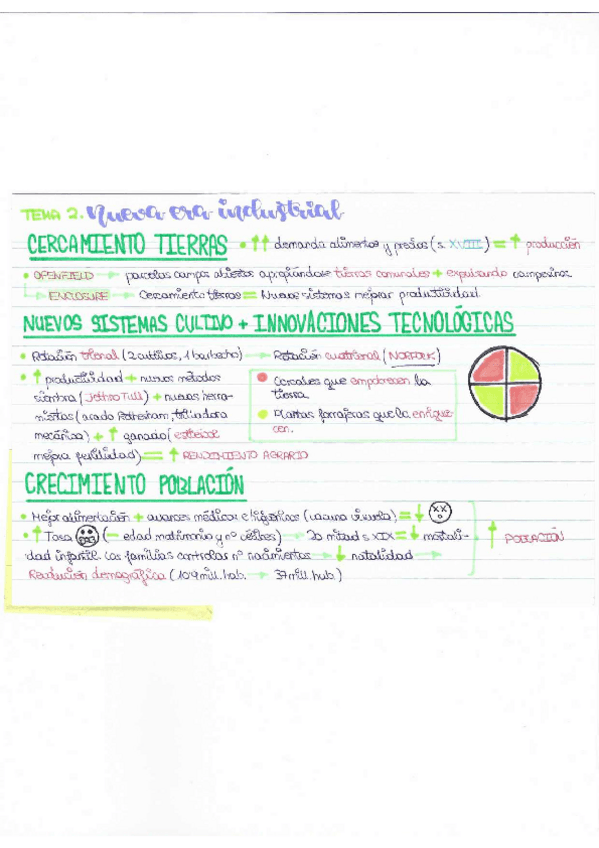 TEMA 2. Nueva era industrial
CERCAMIENTO TIERRAS • ↑↑ demanda alimentos y precios (s. XVIII) = ↑ producción
• OPENFIELD → parcelas campos abiertos apropiándose tierras comunales + expulsando campesinos
→ ENCLOSURE → Cercamiento tierras = Nuevos sistemas mejorar productividad.
NUEVOS SISTEMAS CULTIVO + INNOVACIONES TECNOLÓGICAS
• Rotación trienal (2 cultivos, 1 barbecho) → Rotación cuatrienal (NORFOLK)
• ↑ productividad + nuevos métodos
siembra (Jethro Tull) + nuevas herra-
mientas (arado Rotherham, trilladora
mecánica) + ↑ ganado (estiércol
mejora fertilidad) = ↑ RENDIMIENTO AGRARIO
• Cereales que empobrecen la
tierra.
• Plantas forrajeras que la enrique-
cen.
CRECIMIENTO POBLACIÓN
• Mejor alimentación + avances médicos e higiénicos (vacuna viruela) = ↓
• ↑ Tasa (- edad matrimonio y nº célibes) → 2a mitad s. XIX = ↓ mortali-
dad infantil. Las familias controlas nº nacimientos → ↓ natalidad →
↑ POBLACIÓN
Revolución demográfica (10'9 mill. hab. → 37 mill. hab.)